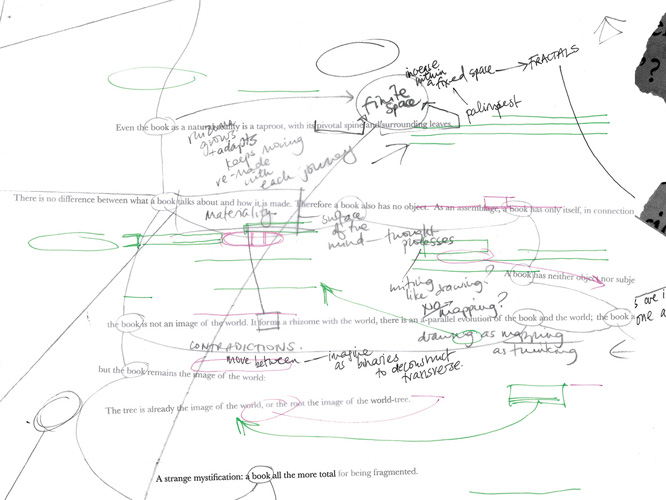 increase
within
a fixed space
FRACTALS
finite
space
palimpsest
?
Even the book as a natural reality is a taproot, with its pivotal spine and surrounding leaves.
rhizome
grows
+ adapts
keeps moving
re-made
with
each journey
There is no difference between what a book talks about and how it is made. Therefore a book also has no object. As an assemblage, a book has only itself, in connection
materiality
surface
of the
mind — thought
processes
A book has neither object nor subje
writing
like drawing?
no
mapping?
the book is not an image of the world. It forms a rhizome with the world, there is an a-parallel evolution of the book and the world; the book a
one a
drawing as mapping
as thinking
CONTRADICTIONS.
move between — imagine
as binaries
to deconstruct
transverse.
but the book remains the image of the world:
The tree is already the image of the world, or the root the image of the world-tree.
A strange mystification: a book all the more total for being fragmented.